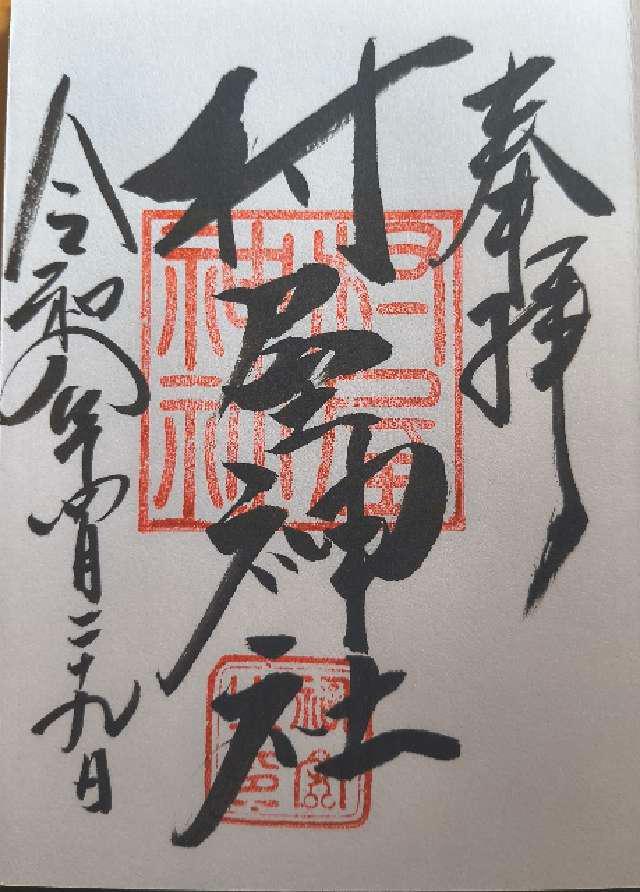 奉拝
村屋神社
村屋神社
令和八年四月二十九日